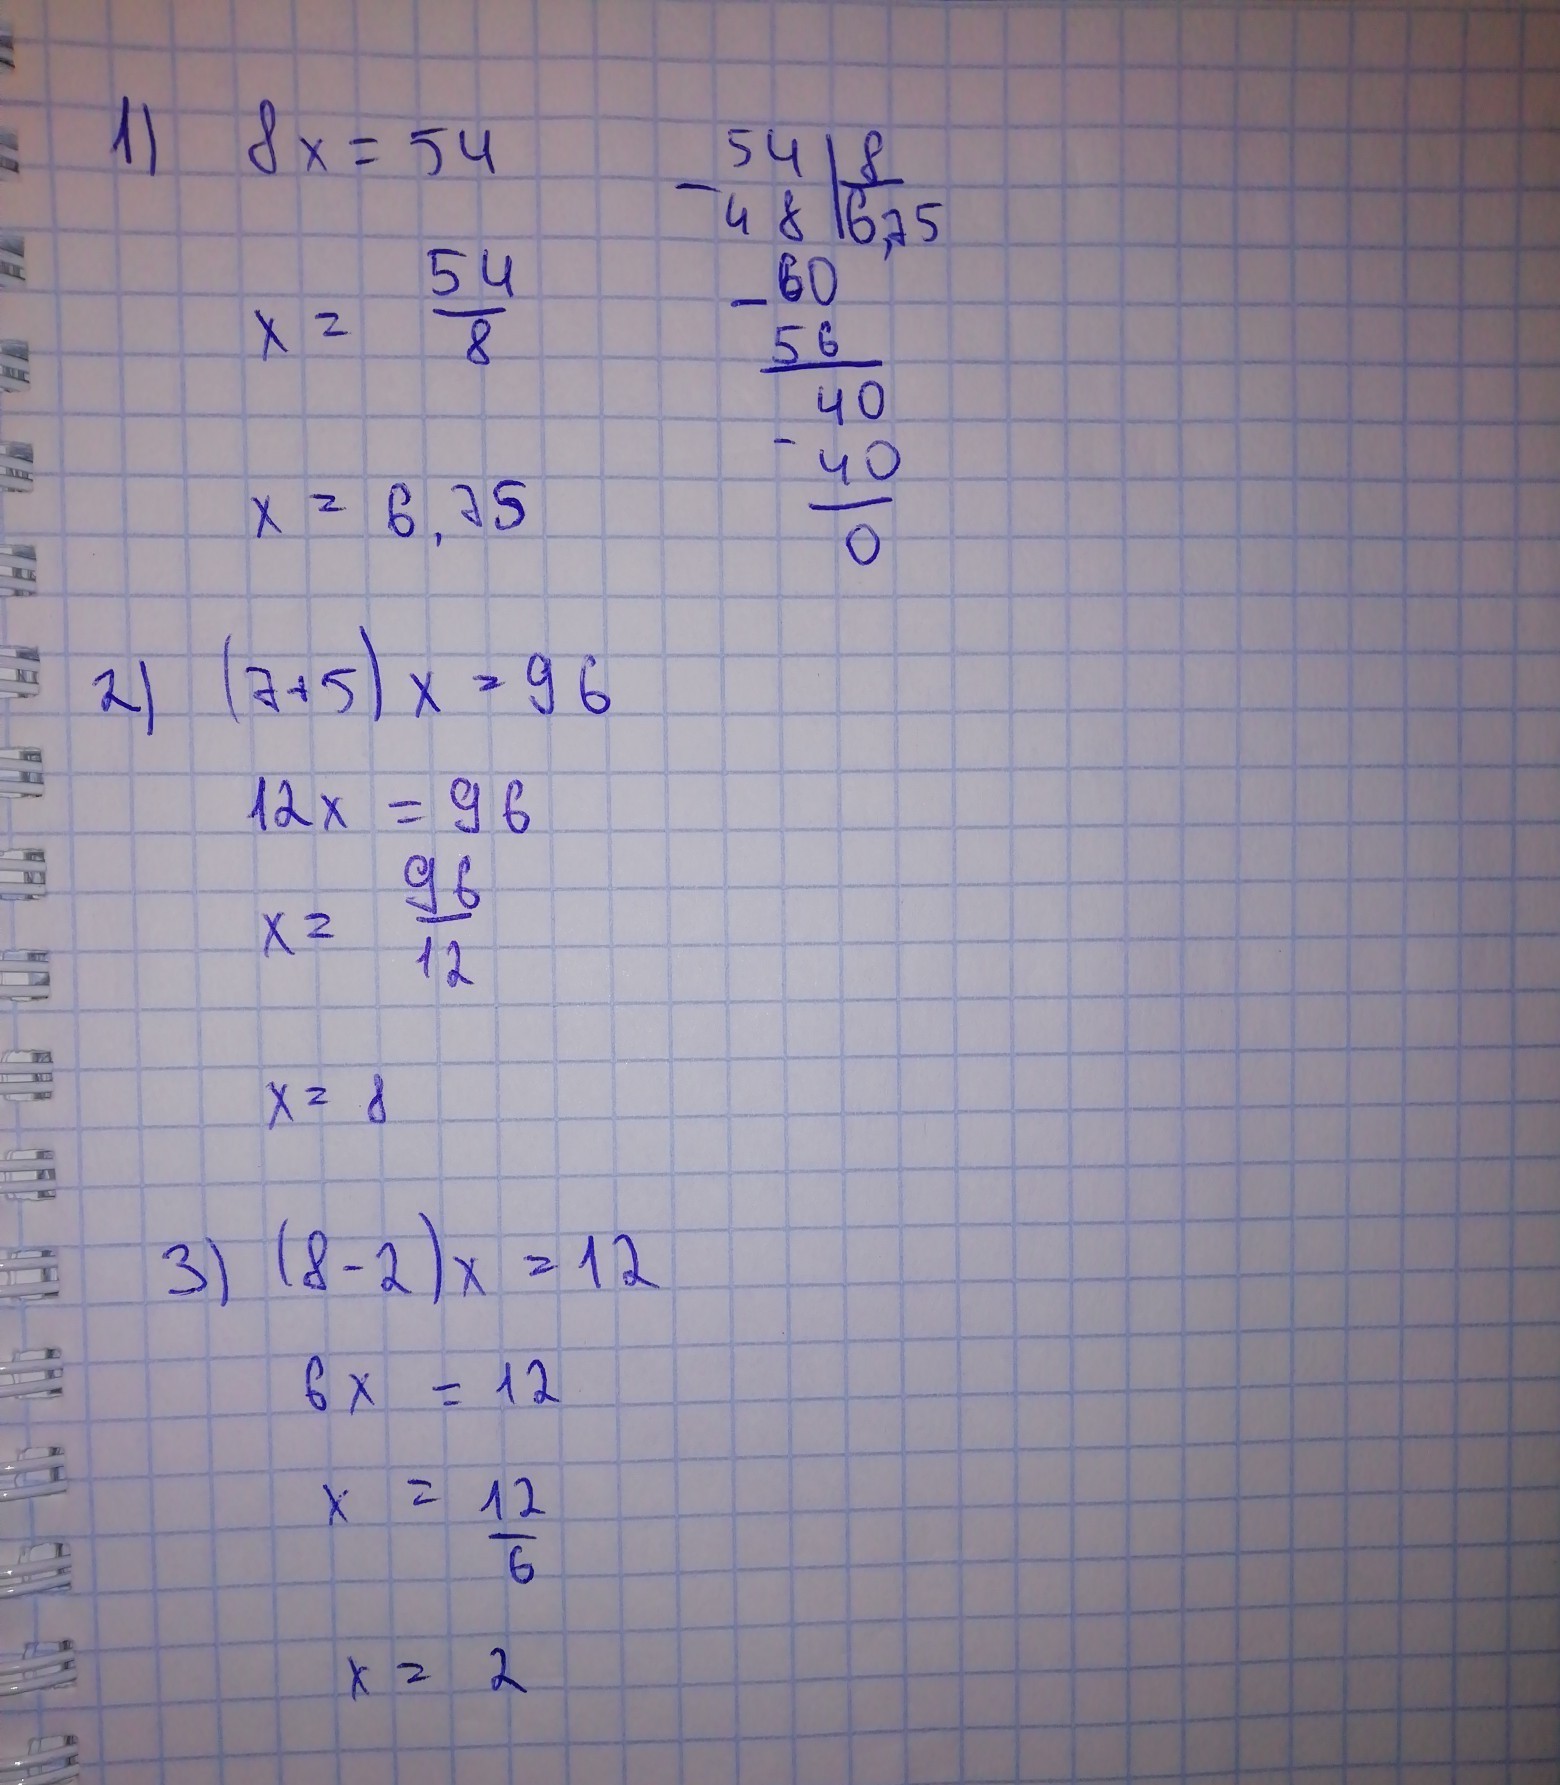 1) 8x = 54
x = 54/8
x = 6,75
54 | 8
- 48 | 6,75
- 60
56
40
- 40
0
2) (7+5) x = 96
12x = 96
x = 96/12
x = 8
3) (8-2) x = 12
6x = 12
x = 12/6
x = 2